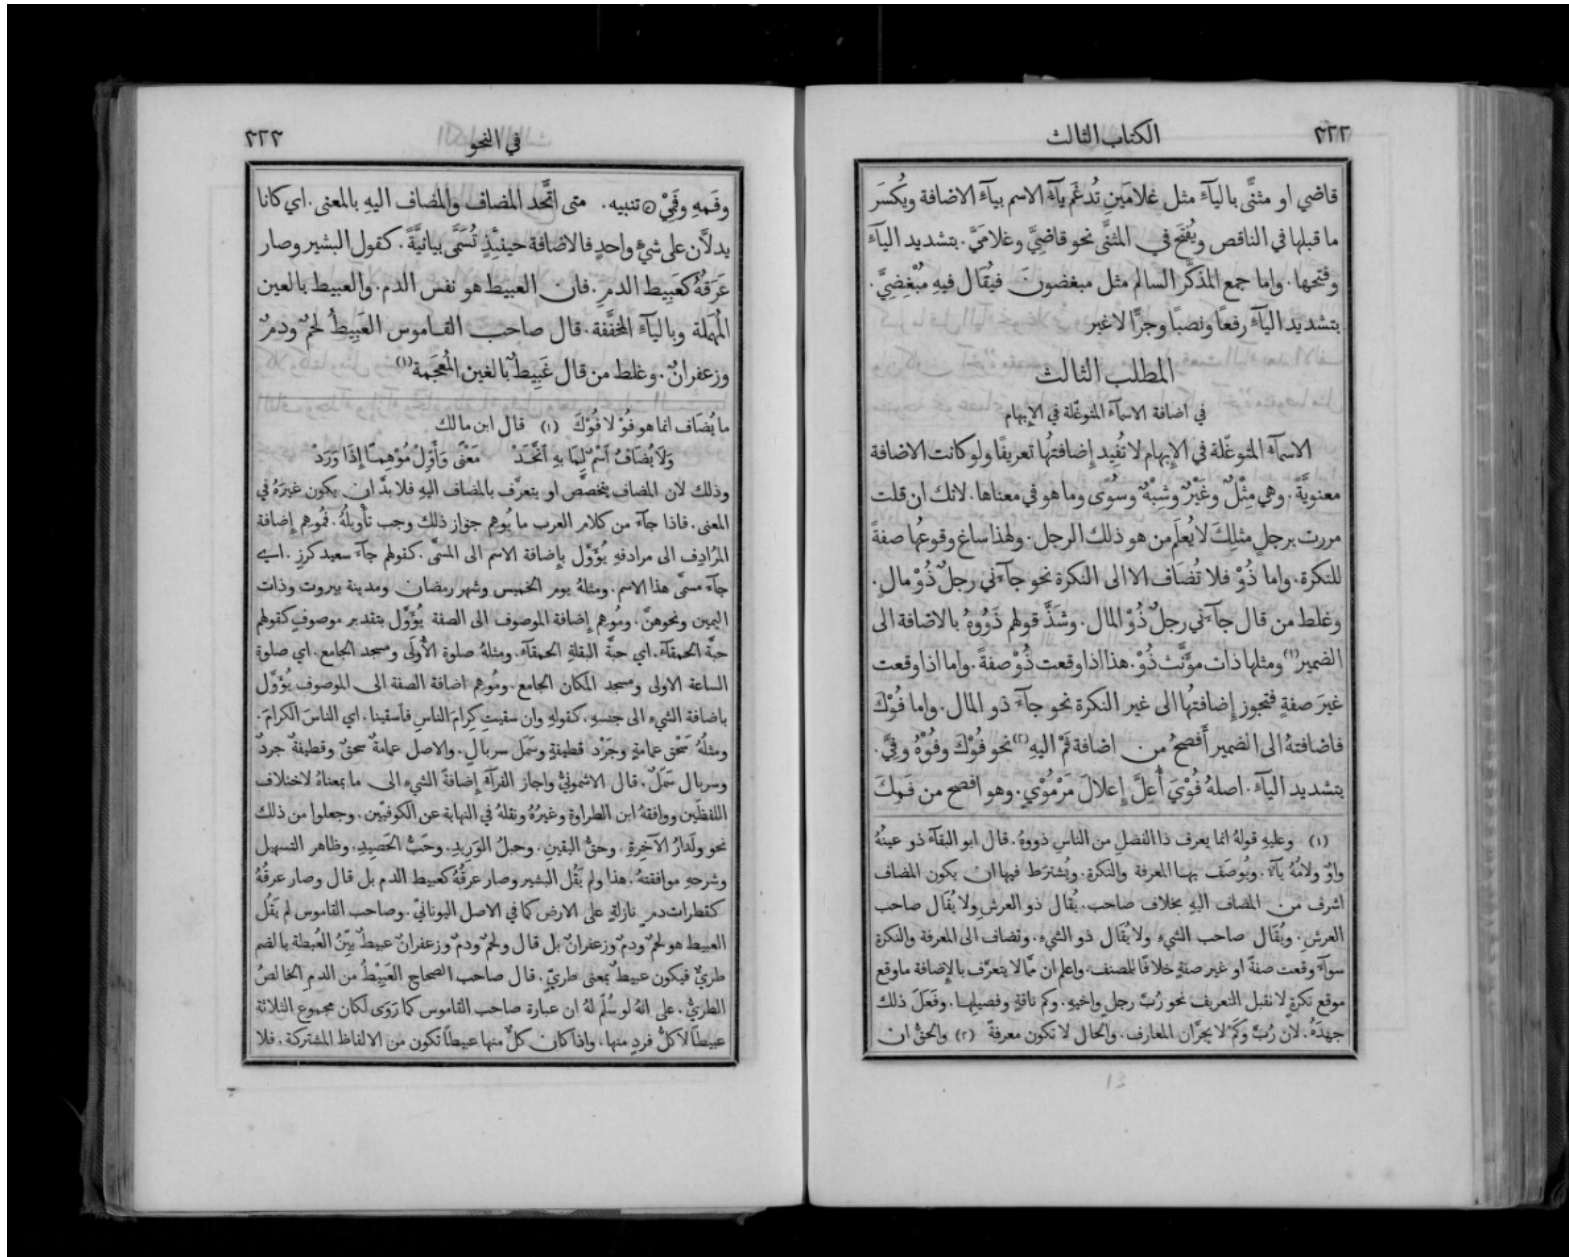 ٣٢٢
الكتاب الثالث
قاضي او مثنًّى بالياءَ مثل غلامَينِ تُدغَم ياءَ الاسم بياءَ الاضافة ويُكسَر
ما قبلها في الناقص ويُفتَح في المثنَّى نحو قاضِيَّ وغلامَيَّ. بتشديد الياءَ
وفتحها. واما جمع المذكَّر السالم مثل مبغضونَ فيُقال فيهِ مُبْغِضِيَّ.
بتشديد الياءَ رفعًا ونصبًا وجرًّا لاغير
المطلب الثالث
في اضافة الاسماءَ المتوغّلة في الإبهام
الاسماءَ المتوغّلة في الإبهام لا تُفِيد إضافتهُا تعريفًا ولو كانت الاضافة
معنويَّةً. وهي مِثْلٌ وغَيْرٌ وشِبْهٌ وسُوًى وما هو في معناها. لانك ان قلت
مررت برجلٍ مثلِكَ لا يُعلَم من هو ذلك الرجل. ولهذا ساغ وقوعُها صفةً
للنكرة. واما ذُوْ فلا تُضَاف الا الى النكرة نحو جآءَني رجلٌ ذُوْ مالٍ.
وغلط من قال جآءَني رجلٌ ذُوْ المال. وشَذَّ قولهم ذَوُوهُ بالاضافة الى
الضمير(١) ومثلها ذات مؤَنَّث ذُوْ. هذا اذا وقعت ذُوْ صفةً. واما اذا وقعت
غيرَ صفةٍ فتجوز إضافتهُا الى غير النكرة نحو جآءَ ذو المال. واما فُوْكَ
فاضافتهُ الى الضمير أَفصحُ من اضافة فَمْ اليهِ(٢) نحو فُوْكَ وفُوْهُ وفِيَّ.
بتشديد الياءَ. اصلهُ فُوْيَ أُعِلَّ إِعلالَ مَرْمُوْيٍ. وهو افصح من فَمِكَ
(١) وعليهِ قولهُ انما يعرف ذا الفضلِ من الناسِ ذووهُ. قال ابو البقاءَ ذو عينُهُ
واوٌ ولامُهُ ياءَ. ويُوصَف بها المعرفة والنكرة. ويُشترَط فيها ان يكون المضاف
اشرف من المضاف اليهِ بخلاف صاحب. يُقال ذو العرش ولا يُقال صاحب
العرش. ويُقال صاحب الشيء ولا يُقال ذو الشيء. وتضاف الى المعرفة والنكرة
سوآءَ وقعت صفةً او غير صفةٍ خلافًا للمصنف. واعلم ان ممَّا لا يتعرَّف بالإضافة ما وقع
موقع نكرةٍ لا تقبل التعريف نحو رُبَّ رجلٍ واخيهِ. وكم ناقةٍ وفصيلِها. وفَعَلَ ذلك
جهدَهُ. لأن رُبَّ وكَمْ لا يجرَّان المعارف. والحال لا تكون معرفةً (٢) والحقُّ ان
41
٣٢٣
في النحو
وفَمهِ وفَمِيْ ۞ تنبيه. متى اتَّحد المضاف والمضاف اليهِ بالمعنى. اي كانا
يدلاَّن على شيءٍ واحدٍ فالاضافة حينئِذٍ تُسَمَّى بيانيَّةً. كقول البشير وصار
عَرَقهُ كعَبِيط الدمِ. فان العبيط هو نفس الدم. والعبيط بالعين
المُهمَلة وبالياءَ المخفَّفة. قال صاحب القاموس العَبِيطُ لحمٌ ودمٌ
وزعفرانٌ. وغلط من قال غَبِيطٌ بالغين المُعجَمة(١)
ما يُضَاف انما هو فُوْ لا فُوْكَ (١) قال ابن مالك
وَلَا يُضَافُ اَسْمٌ لِمَا بِهِ اَتَّحَدْ مَعْنًى وَأَوِّلْ مُوْهِمًا إِذَا وَرَدْ
وذلك لان المضاف يتخصَّص او يتعرَّف بالمضاف اليهِ فلا بدَّ ان يكون غيرَهُ في
المعنى. فاذا جآءَ من كلام العرب ما يُوهِم جواز ذلك وجب تأويلُهُ. فمُوهِم إضافة
المُرَادِف الى مرادفهِ يُؤَوَّل بإِضافة الاسم الى المسمَّى. كقولهم جآءَ سعيد كرزٍ. اي
جآءَ مسمَّى هذا الاسم. ومثلهُ يوم الخميس وشهر رمضان ومدينة بيروت وذات
اليمين ونحوهنَّ. ومُوهِم إضافة الموصوف الى الصفة يُؤَوَّل بتقدير موصوفٍ كقولهم
حبَّة الحمقاءَ. اي حبَّة البقلةِ الحمقاءَ. ومثلهُ صلوة الأُولَى ومسجد الجامع. اي صلوة
الساعة الاولى ومسجد المكان الجامع. ومُوهِم اضافة الصفة الى الموصوف يُؤَوَّل
باضافة الشيء الى جنسهِ. كقولهِ وان سقيتِ كِرامَ الناسِ فاَسقينا. اي الناسَ الكرامَ.
ومثلُهُ سَحْق عمامةٍ وجَرْد قطيفةٍ وسَمَل سربالٍ. والاصل عمامةٌ سحقٌ وقطيفةٌ جردٌ
وسربال سَمَلٌ. قال الاشمونيُّ واجاز الفرَّاءَ إِضافةَ الشيء الى ما بمعناهُ لاختلاف
اللفظَين ووافقهُ ابن الطراوة وغيرُهُ ونقلهُ في النهاية عن الكوفيّين. وجعلوا من ذلك
نحو ولَدارُ الآخِرةِ. وحقُّ اليقين. وحبلُ الوَرِيدِ. وحَبُّ الحَصِيدِ. وظاهر التسهيل
وشرحهِ موافقتهُ. هذا ولم يَقُل البشير وصار عرَقُهُ كعبيط الدم بل قال وصار عرقُهُ
كقطرات دمٍ نازلةٍ على الارض كما في الاصل اليونانيّ. وصاحب القاموس لم يَقُل
العبيط هو لحمٌ ودمٌ وزعفرانٌ بل قال ولحمٌ ودمٌ وزعفرانٌ عبيطٌ بيِّنُ العُبطة بالضم
طريٌّ فيكون عبيطٌ بمعنى طريٍّ. قال صاحب الصحاح العَبِيْطُ من الدمِ الخالصُ
الطريُّ. على انهُ لو سُلِّم لهُ ان عبارة صاحب القاموس كما رَوَى لكان مجموع الثلاثة
عبيطًا لا كلُّ فردٍ منها. واذا كان كلٌّ منها عبيطًا تكون من الالفاظ المشتركة. فلا